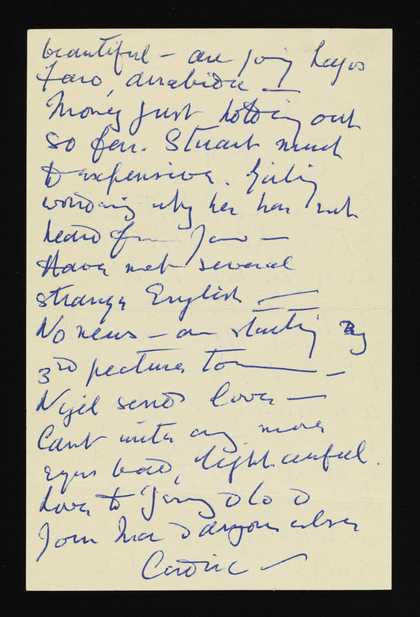 beautiful – are going Lagos
Faro, Arrabida —
Money just holding out
so far. Stuart much
to expensive.
wondering why he has not
heard from Jane —
Have met several
strange English —
No news – am starting my
3rd picture tom——
Nigel sends love —
Cant write any more
eyes bad, light awful.
Love to
John Ma & anyone else